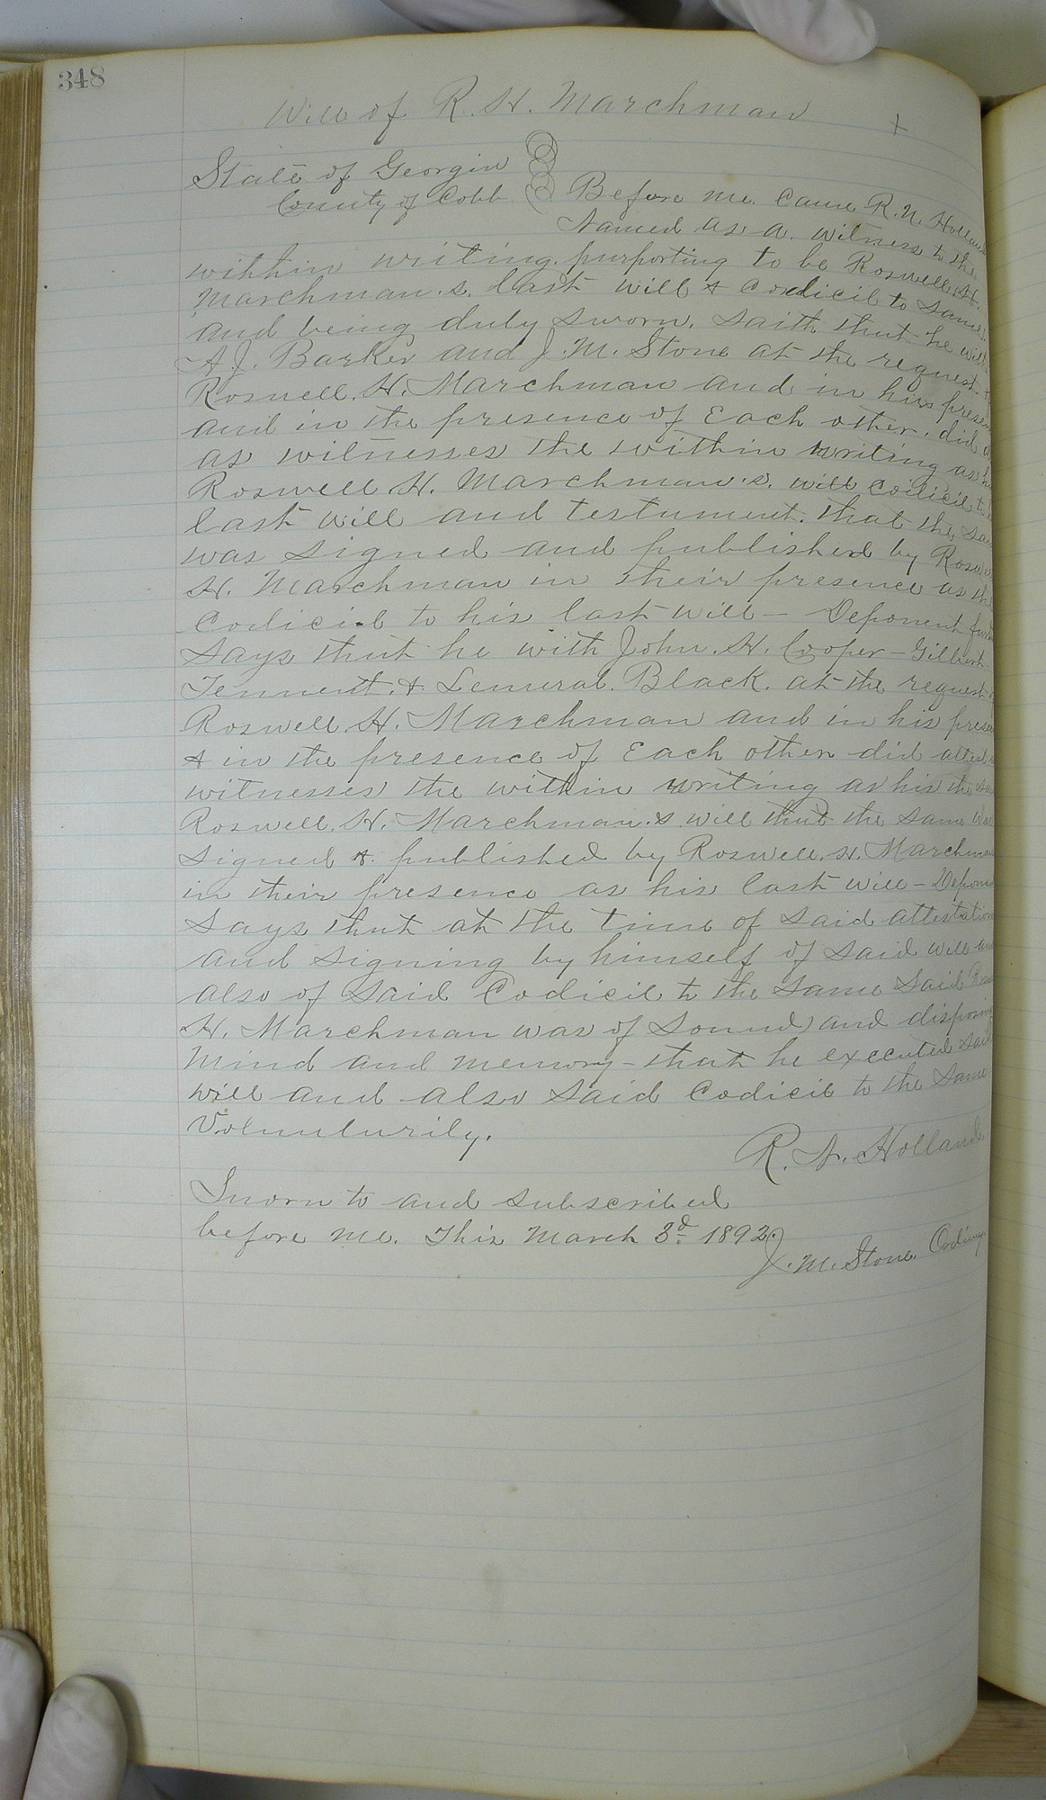 348
Will of R. H. Marchman +
State of Georgia
County of Cobb Before me came R. N. Holland
Named as a witness to the
within writing purporting to be Roswell H.
Marchman.s. last will & Codicil to same
and being duly sworn. saith that he with
A. J. Barker and J. M. Stone at the request
Roswell. H. Marchman and in his
and in the presence of Each other. did
as witnesses the within writing as his
Roswell H. Marchman.s. will codicil to
last will and testament. that the
was signed and published by
H. Marchman in their presence as the
Codicil to his last will - Deponent
says that he with John. H. Cooper - Gilbert
Tennent. & Lemeral. Black. at the request
Roswell H. Marchman and in his
& in the presence of Each other did attest
witnesses the within writing as his the
Roswell. H. Marchman.s will that the same
signed & published by Roswell. H. Marchman
in their presence as his last will -
says that at the time of said attestation
and signing by himself of said will
also of said Codicil to the same said
H. Marchman was of sound and disposing
mind and memory - that he executed said
will and also said Codicil to the same
Voluntarily.
R. N. Holland
Sworn to and subscribed
before me. This March 3d 1892
J. M. Stone Ordinary